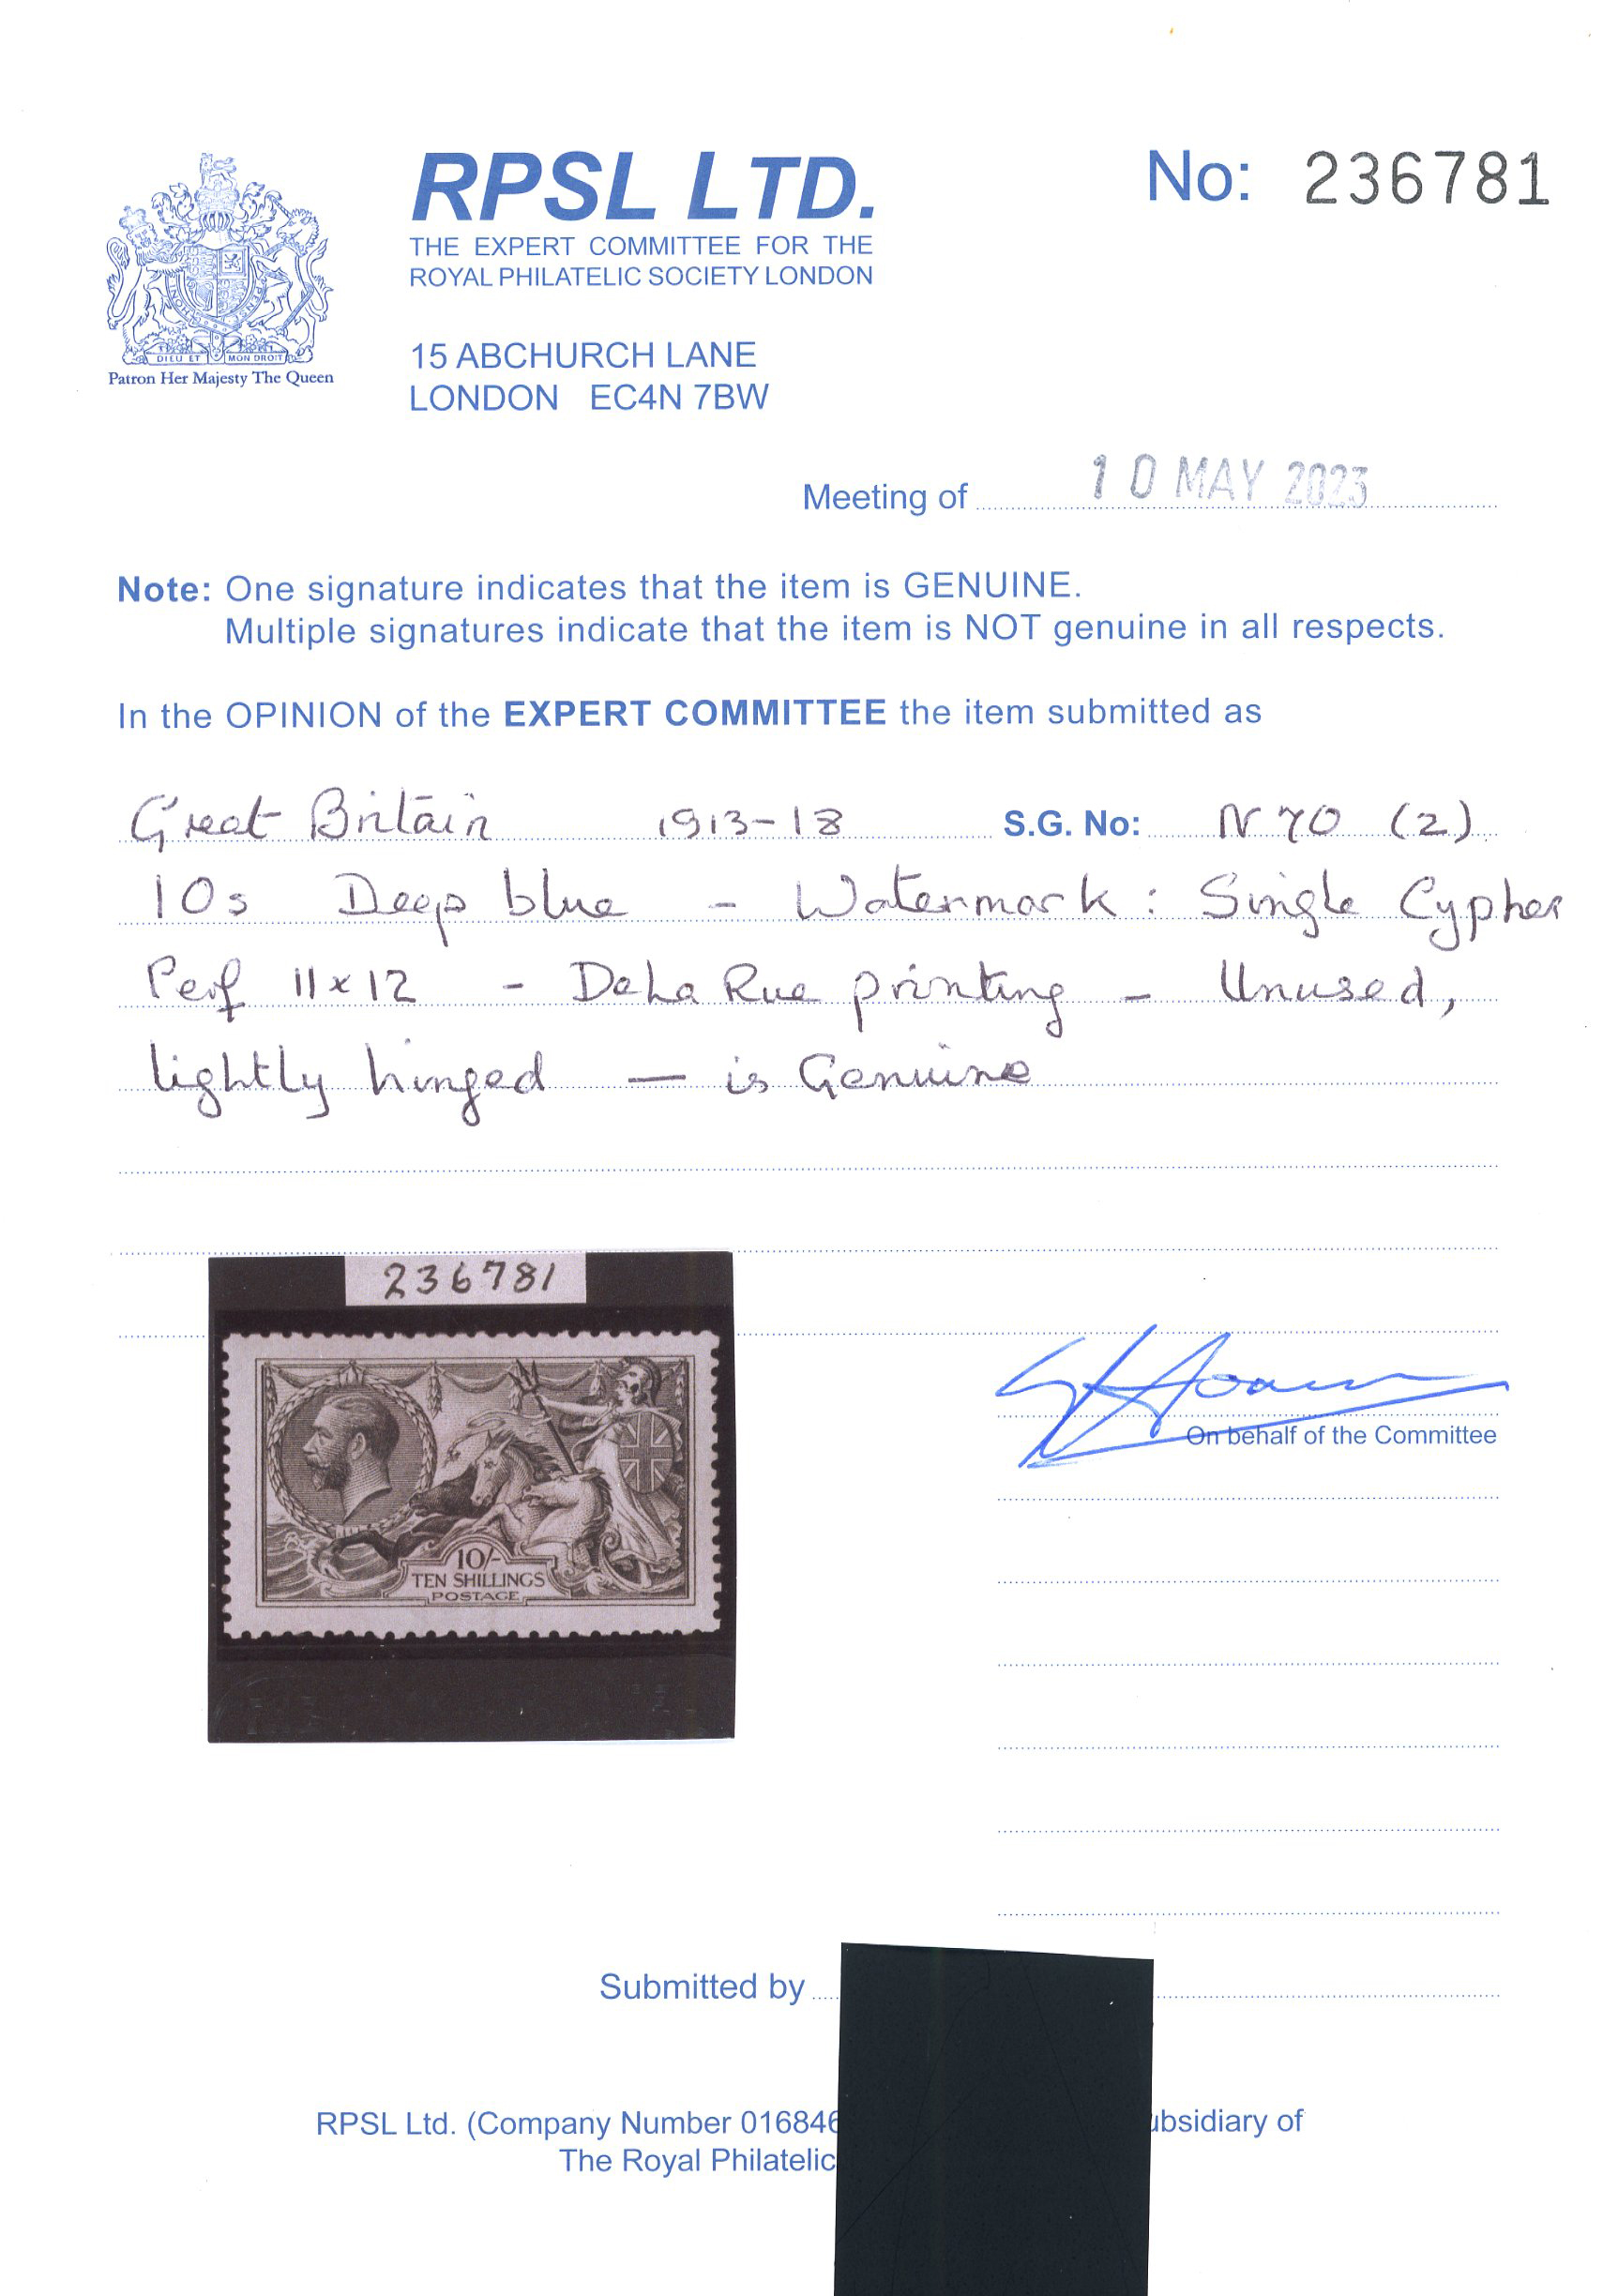 RPSL LTD.
No: 236781
THE EXPERT COMMITTEE FOR THE
ROYAL PHILATELIC SOCIETY LONDON
DIEU ET MON DROIT
Patron Her Majesty The Queen
15 ABCHURCH LANE
LONDON EC4N 7BW
Meeting of 10 MAY 2023
Note: One signature indicates that the item is GENUINE.
Multiple signatures indicate that the item is NOT genuine in all respects.
In the OPINION of the EXPERT COMMITTEE the item submitted as
Great Britain 1913-18 S.G. No: N70 (2)
10s Deep blue - Watermark: Single Cypher
Perf 11x12 - DeLa Rue printing - Unused,
lightly hinged — is Genuine
236781
10/-
TEN SHILLINGS
POSTAGE
On behalf of the Committee
Submitted by
RPSL Ltd. (Company Number 016846 ubsidiary of
The Royal Philatelic